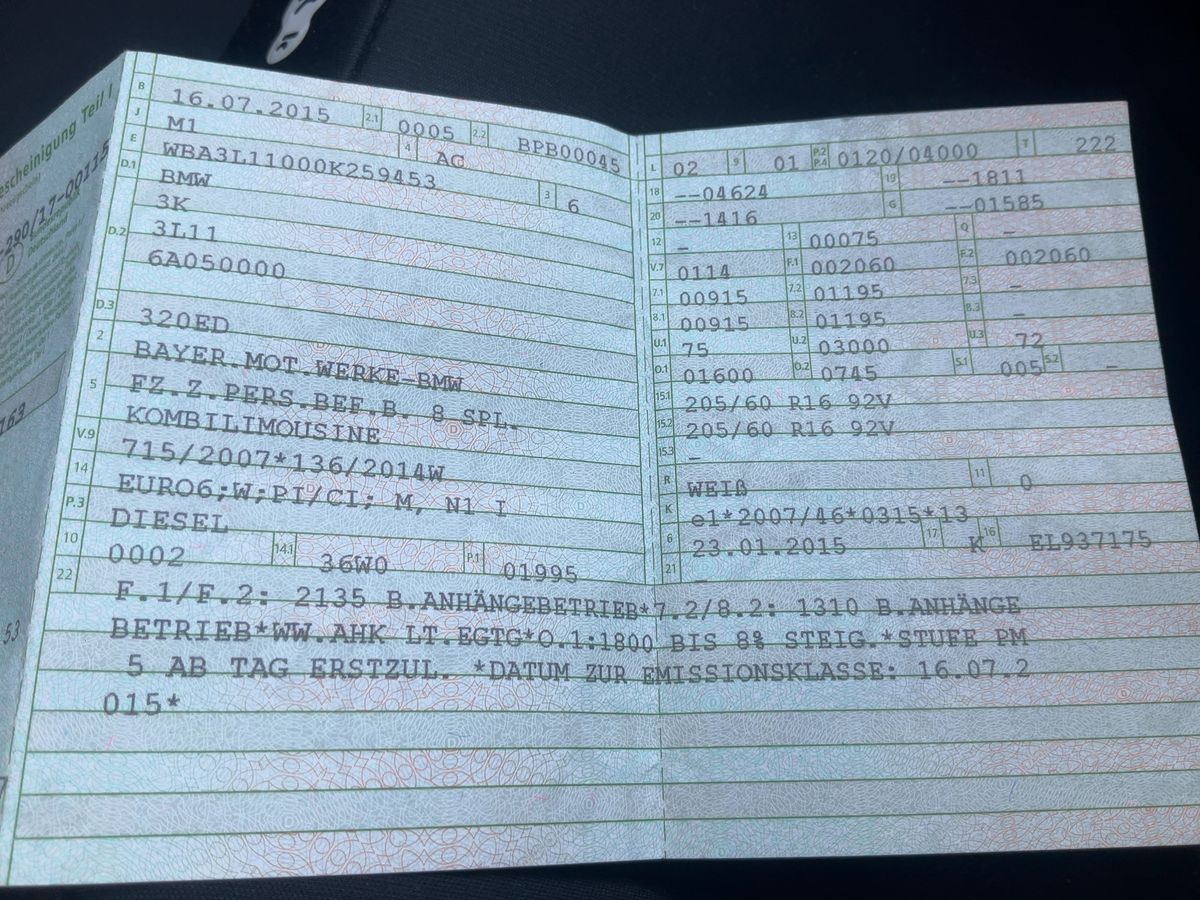 escheinigung Teil I
-290/17-00115
D
163
53
B 16.07.2015 2.1 0005 2.2 BPB00045
J M1 4 AG
E WBA3L11000K259453 3 6
D.1 BMW
D.2 3K
3L11
6A050000
D.3 320ED
2 BAYER.MOT.WERKE-BMW
5 FZ.Z.PERS.BEF.B. 8 SPL.
KOMBILIMOUSINE
V.9 715/2007*136/2014W
14 EURO6;W;PI/CI; M, N1 I
P.3 DIESEL
10 0002 14.1 36W0 P.1 01995
L 02 9 01 P.2 P.4 0120/04000 T 222
18 --04624 19 --1811
20 --1416 G --01585
12 - 13 00075 Q -
V.7 0114 F.1 002060 F.2 002060
7.1 00915 7.2 01195 7.3 -
8.1 00915 8.2 01195 8.3 -
U.1 75 U.2 03000 U.3 72
O.1 01600 O.2 0745 S.1 005 S.2 -
15.1 205/60 R16 92V
15.2 205/60 R16 92V
15.3 -
R WEIß 11 0
K e1*2007/46*0315*13
6 23.01.2015 17 K 16 EL937175
21 -
22 F.1/F.2: 2135 B.ANHÄNGEBETRIEB*7.2/8.2: 1310 B.ANHÄNGE
BETRIEB*WW.AHK LT.EGTG*O.1:1800 BIS 8% STEIG.*STUFE PM
5 AB TAG ERSTZUL. *DATUM ZUR EMISSIONSKLASSE: 16.07.2
015*